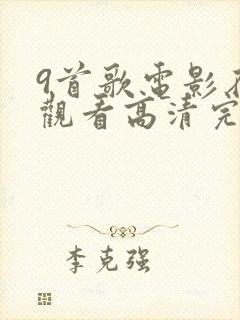 9首歌电影在
觀看高清完
李克强